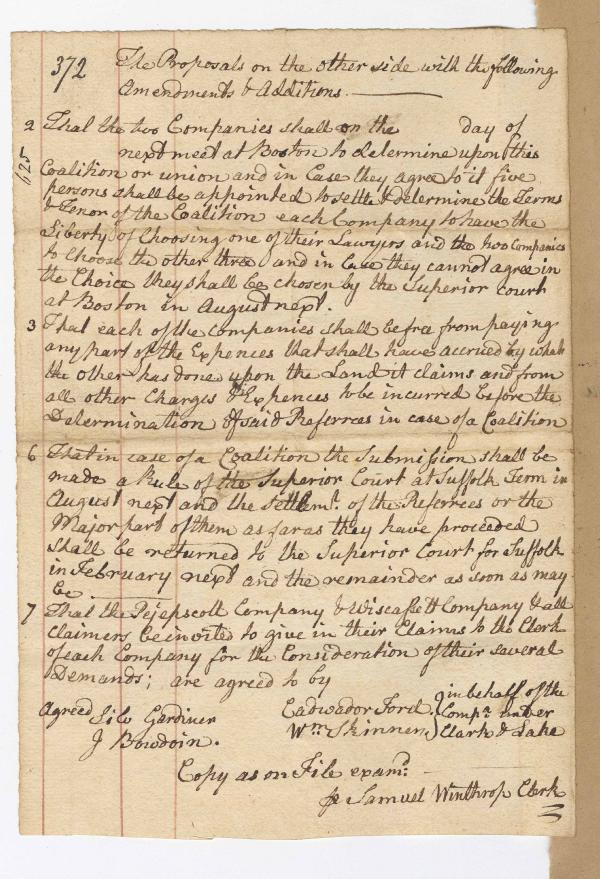 372 The Proposals on the other side with the following
Amendments & Additions.
2 That the two Companies shall on the day of
next meet at Boston to determine upon this
625
Coalition or union and in Case they agree to it five
persons shall be appointed to settle & determine the Terms
& Tenor of the Coalition each Company to have the
Liberty of Choosing one of their Lawyers and the two Companies
to Choose the other three and in Case they cannot agree in
the Choice they shall be chosen by the Superior court
at Boston in August next.
3 That each of the companies shall be free from paying
any part of the Expences that shall have accrued by what
the other has done upon the Land it claims and from
all other Charges & Expences to be incurred before the
Determination of said Referrees in case of a Coalition
6 That in case of a Coalition the Submission shall be
made a Rule of the Superior Court at Suffolk Term in
August next and the Settlemt. of the Referrees or the
Major part of them as far as they have proceeded
Shall be returned to the Superior Court for Suffolk
in February next and the remainder as soon as may
be
7 That the Pejepscott Company & Wiscassett Company & all
Claimers be invited to give in their Claims to the Clerk
of each Company for the Consideration of their several
Demands; are agreed to by
Agreed Silv Gardiner
J Bowdoin.
Cadwador Ford
Wm. Skinner
in behalf of the
Compa. under
Clark & Lake
Copy as on File examd.
pr Samuel Winthrop Clerk